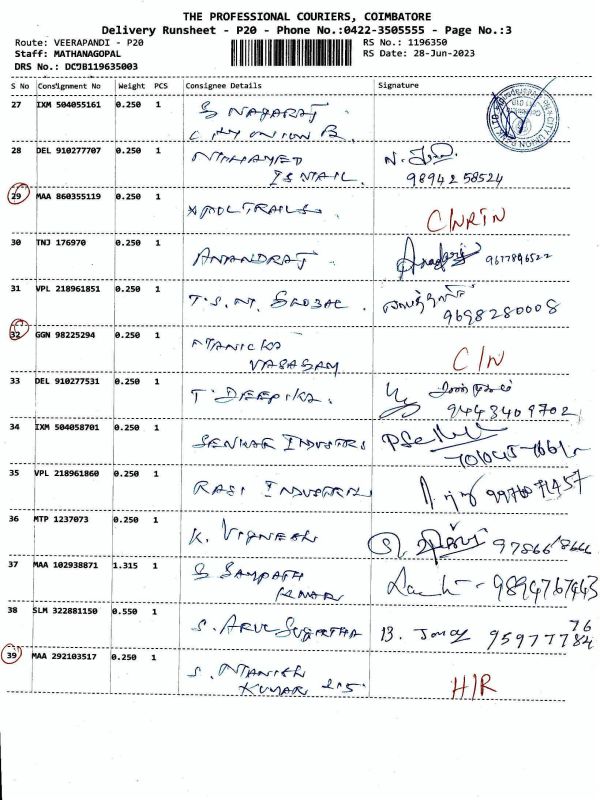 THE PROFESSIONAL COURIERS, COIMBATORE
Delivery Runsheet - P20 - Phone No.:0422-3505555 - Page No.:3
Route: VEERAPANDI - P20 RS No.: 1196350
Staff: MATHANAGOPAL RS Date: 28-Jun-2023
DRS No.: DCJB119635003
S No Consignment No Weight PCS Consignee Details Signature
27 IXM 504055161 0.250 1 S NAGARAJ
CITY UNION B.
28 DEL 910277707 0.250 1 MOHAMED
ISMAIL. 9894258524
29 MAA 860355119 0.250 1 C/NRTN
30 TNJ 176970 0.250 1 ANANDRAJ 9677896522
31 VPL 218961851 0.250 1 T.S.M. GLOBAL 9698280008
32 GGN 98225294 0.250 1 MANICKA
VASAGAM C/N
33 DEL 910277531 0.250 1 T. DEEPIKA. 9443409702
34 IXM 504058701 0.250 1 INDUSTRIES
35 VPL 218961860 0.250 1 RASI INDUSTRIES
36 MTP 1237073 0.250 1 K. VIGNESH
37 MAA 102938871 1.315 1 S SAMPATH
KUMAR 9894767443
38 SLM 322881150 0.550 1 S. ARUL SUGANTHA
39 MAA 292103517 0.250 1 S. MANISH
KUMAR H/R